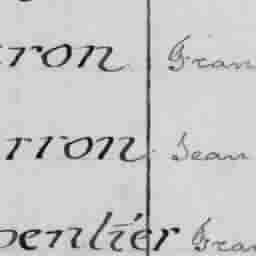 rron Fran
rron Jean
pentier Fran